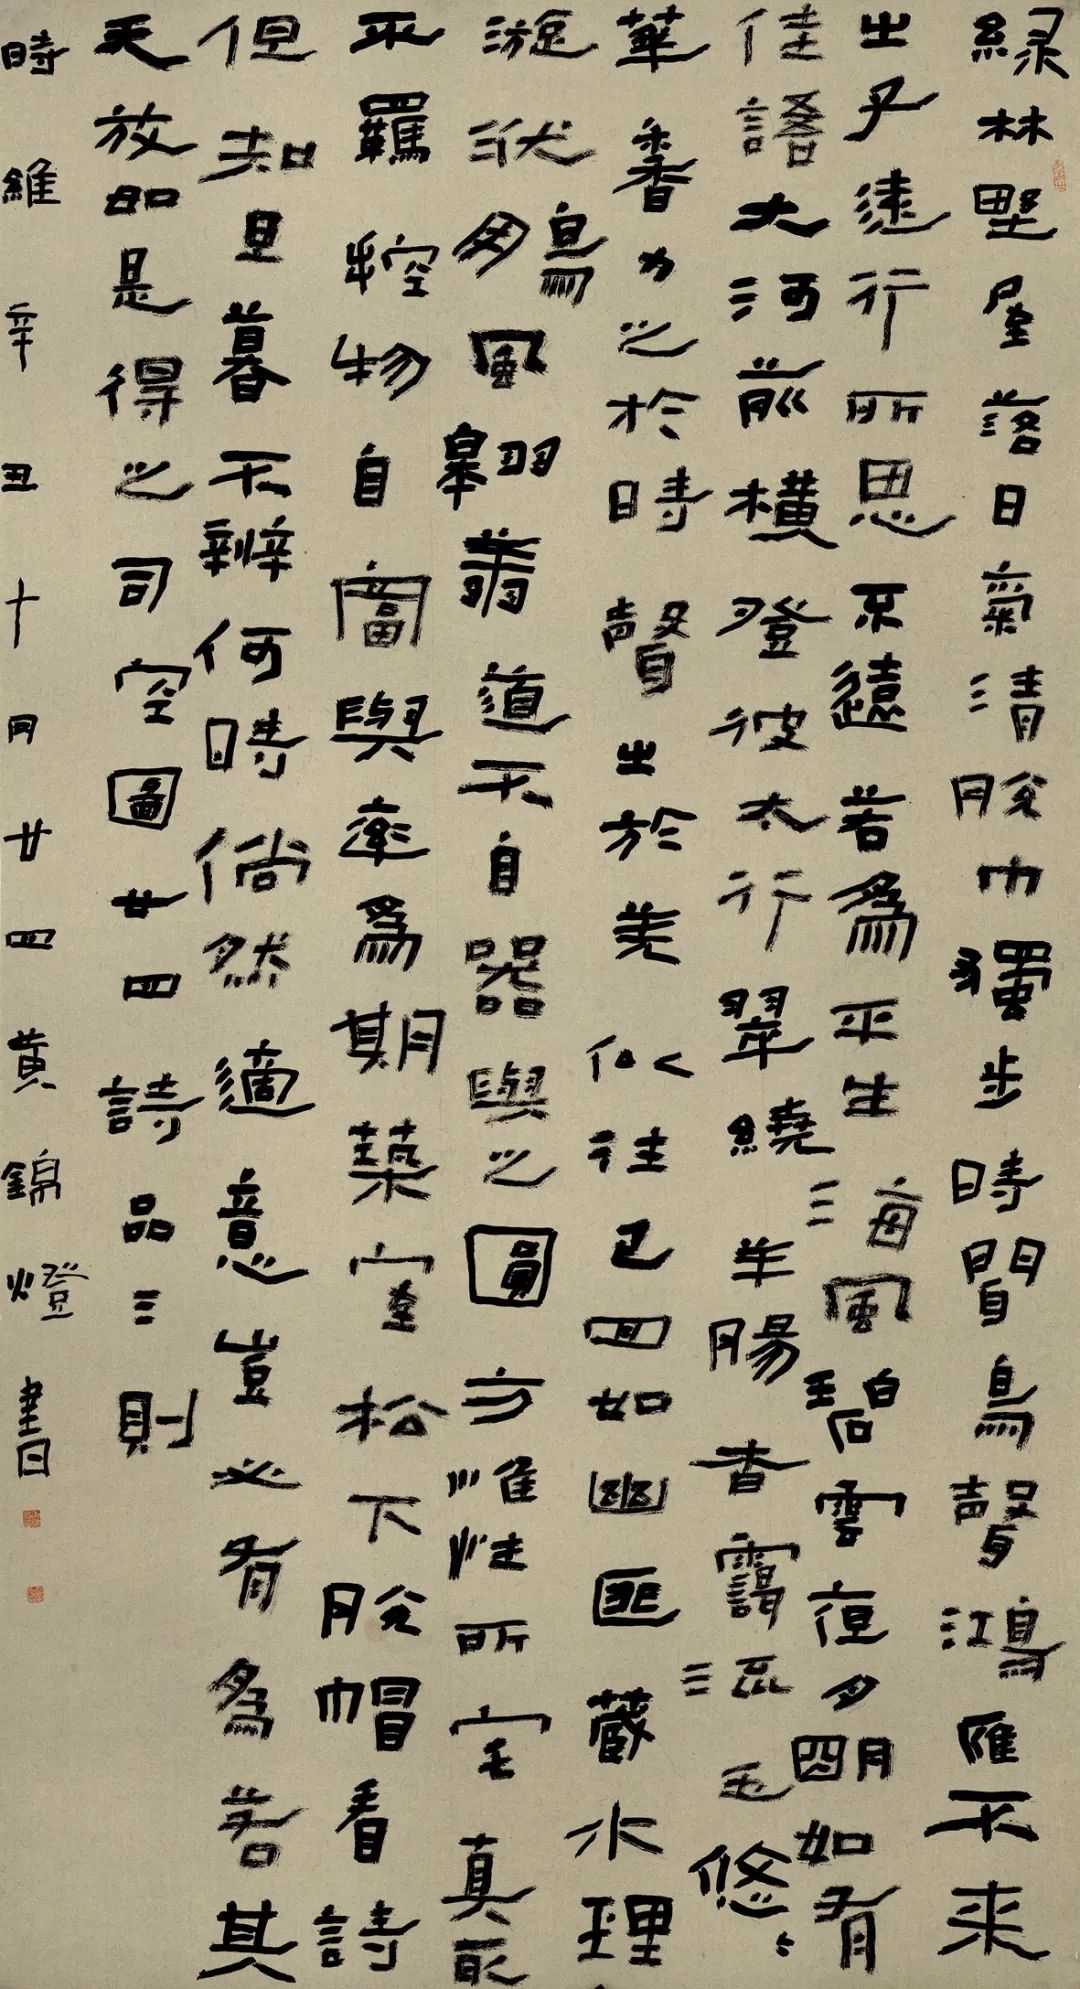 緑林野屋落日氣清脫巾獨步時聞鳥聲鴻雁不来
之子遠行所思不遠若為平生海風碧雲夜月明如有
佳語大河前橫登彼太行翠繞羊腸杳靄流玉悠〻
華香力之於時聲出於羌似往已回如幽匪藏水理
漩洑鵬風翱翔道不自器與之圓方惟性所宅真取
不羈控物自富與率為期築室松下脫帽看詩
但知旦暮不辨何時倘然適意豈必有為若其
天放如是得之司空圖廿四詩品三則
時維辛丑十月廿四黃錦燈書